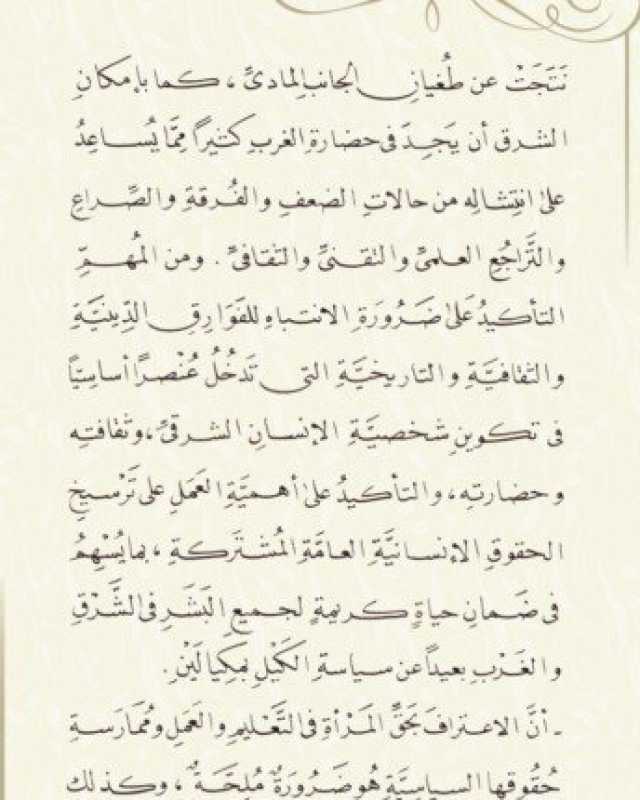 نَتَجَتْ عن طُغيانِ الجانبِ المادىِّ ، كما بإمكانِ
الشرق أن يَجِدَ فى حضارةِ الغربِ كثيرًا مِمَّا يُساعِدُ
على انتِشالِه من حالاتِ الضعفِ والفُرقةِ والصِّراعِ
والتَّراجُعِ العلمىِّ والتقنىِّ والثقافىِّ . ومن المُهمِّ
التأكيدُ عَلى ضَرُورَةِ الانتباهِ للفَوَارِقِ الدِّينيَّةِ
والثقافيَّةِ والتاريخيَّةِ التى تَدخُلُ عُنْصرًا أساسِيًّا
فى تكوينِ شخصيَّةِ الإنسانِ الشرقىِّ ،وثقافتِه
وحضارتِه، والتأكيدُ على أهميَّةِ العَمَلِ على تَرْسيخِ
الحقوقِ الإنسانيَّةِ العامَّةِ المُشتَركةِ ، بما يُسْهِمُ
فى ضَمانِ حياةٍ كريمةٍ لجميعِ البَشَرِ فى الشَّرْقِ
والغَرْبِ بعيداً عن سياسةِ الكَيْلِ بمكيالَيْنِ .
ـ أنَّ الاعترافَ بحَقِّ المَرْأةِ فى التَّعْليمِ والعَمَلِ ومُمارَسةِ
حُقُوقِها السياسيَّةِ هُو ضَرُورَةٌ مُلِحَّةٌ ، وكذلك